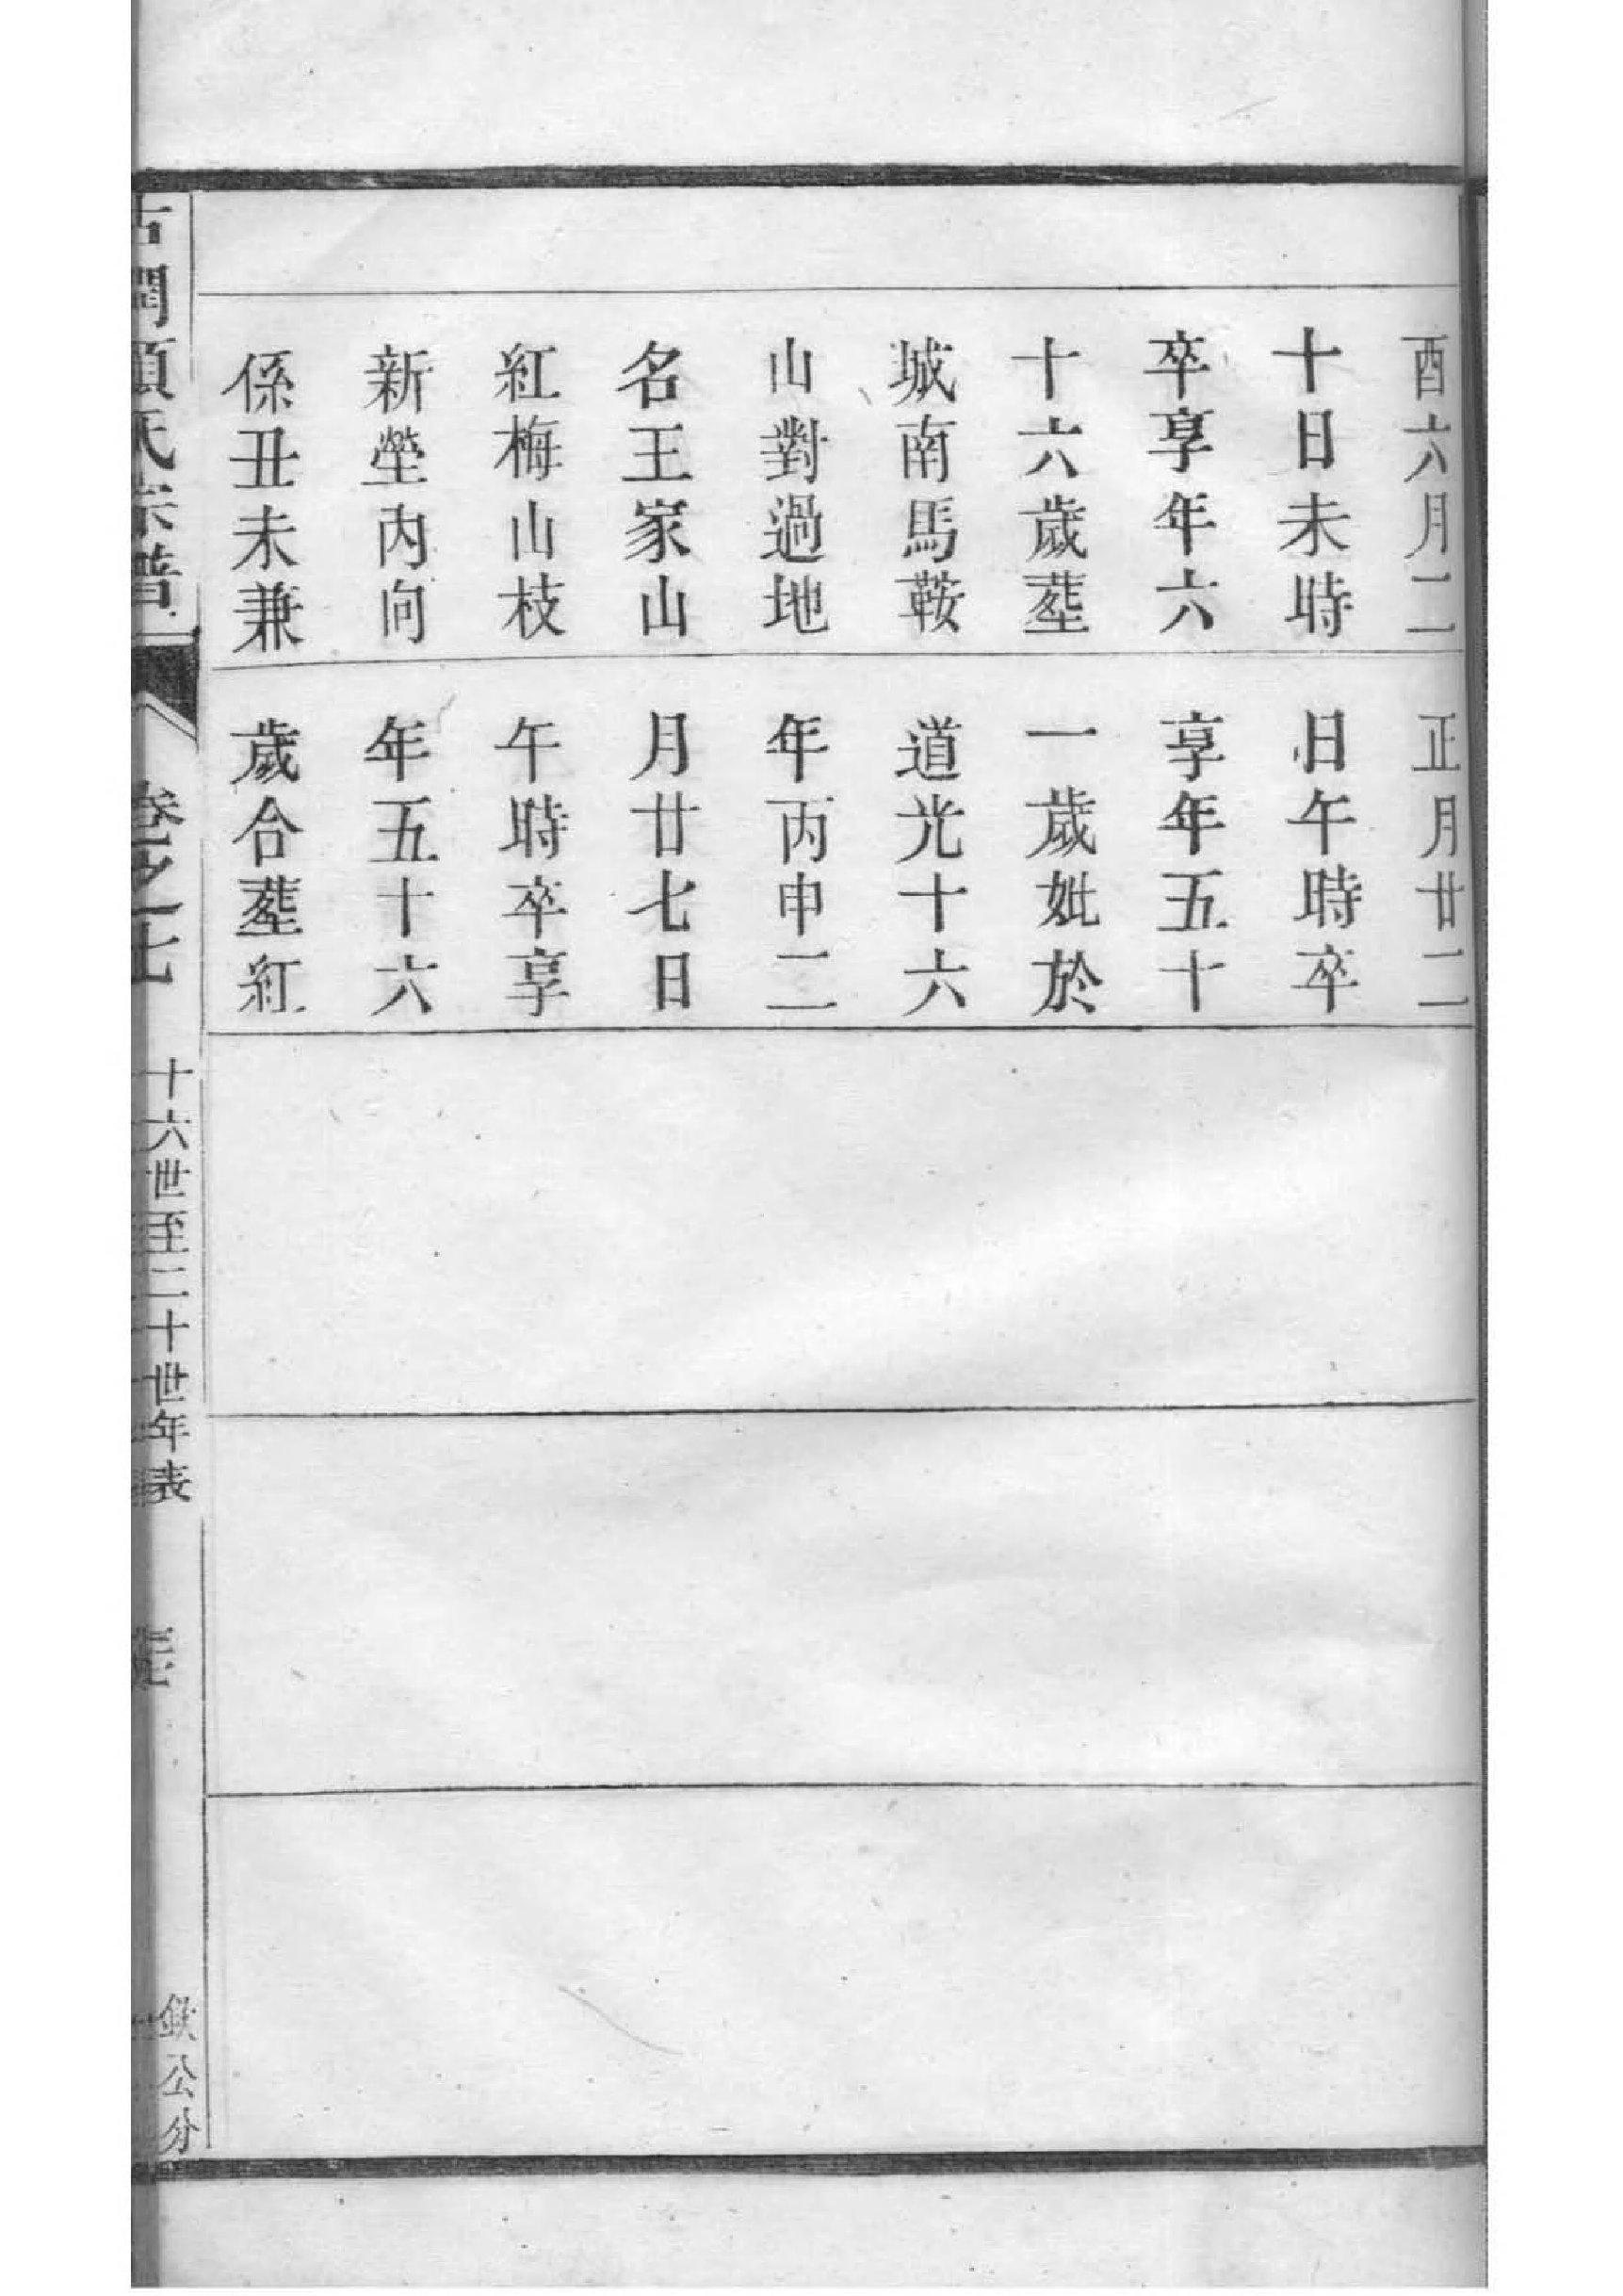 酉六月二
十日未時
卒享年六
十六歲塟
城南馬鞍
山對過地
名王家山
紅梅山枝
新塋內向
係丑未兼
正月廿二
日午時卒
享年五十
一歲妣於
道光十六
年丙申二
月廿七日
午時卒享
年五十六
歲合塟紅
古潤項氏宗譜
卷之七
十六世至二十世年表
公分